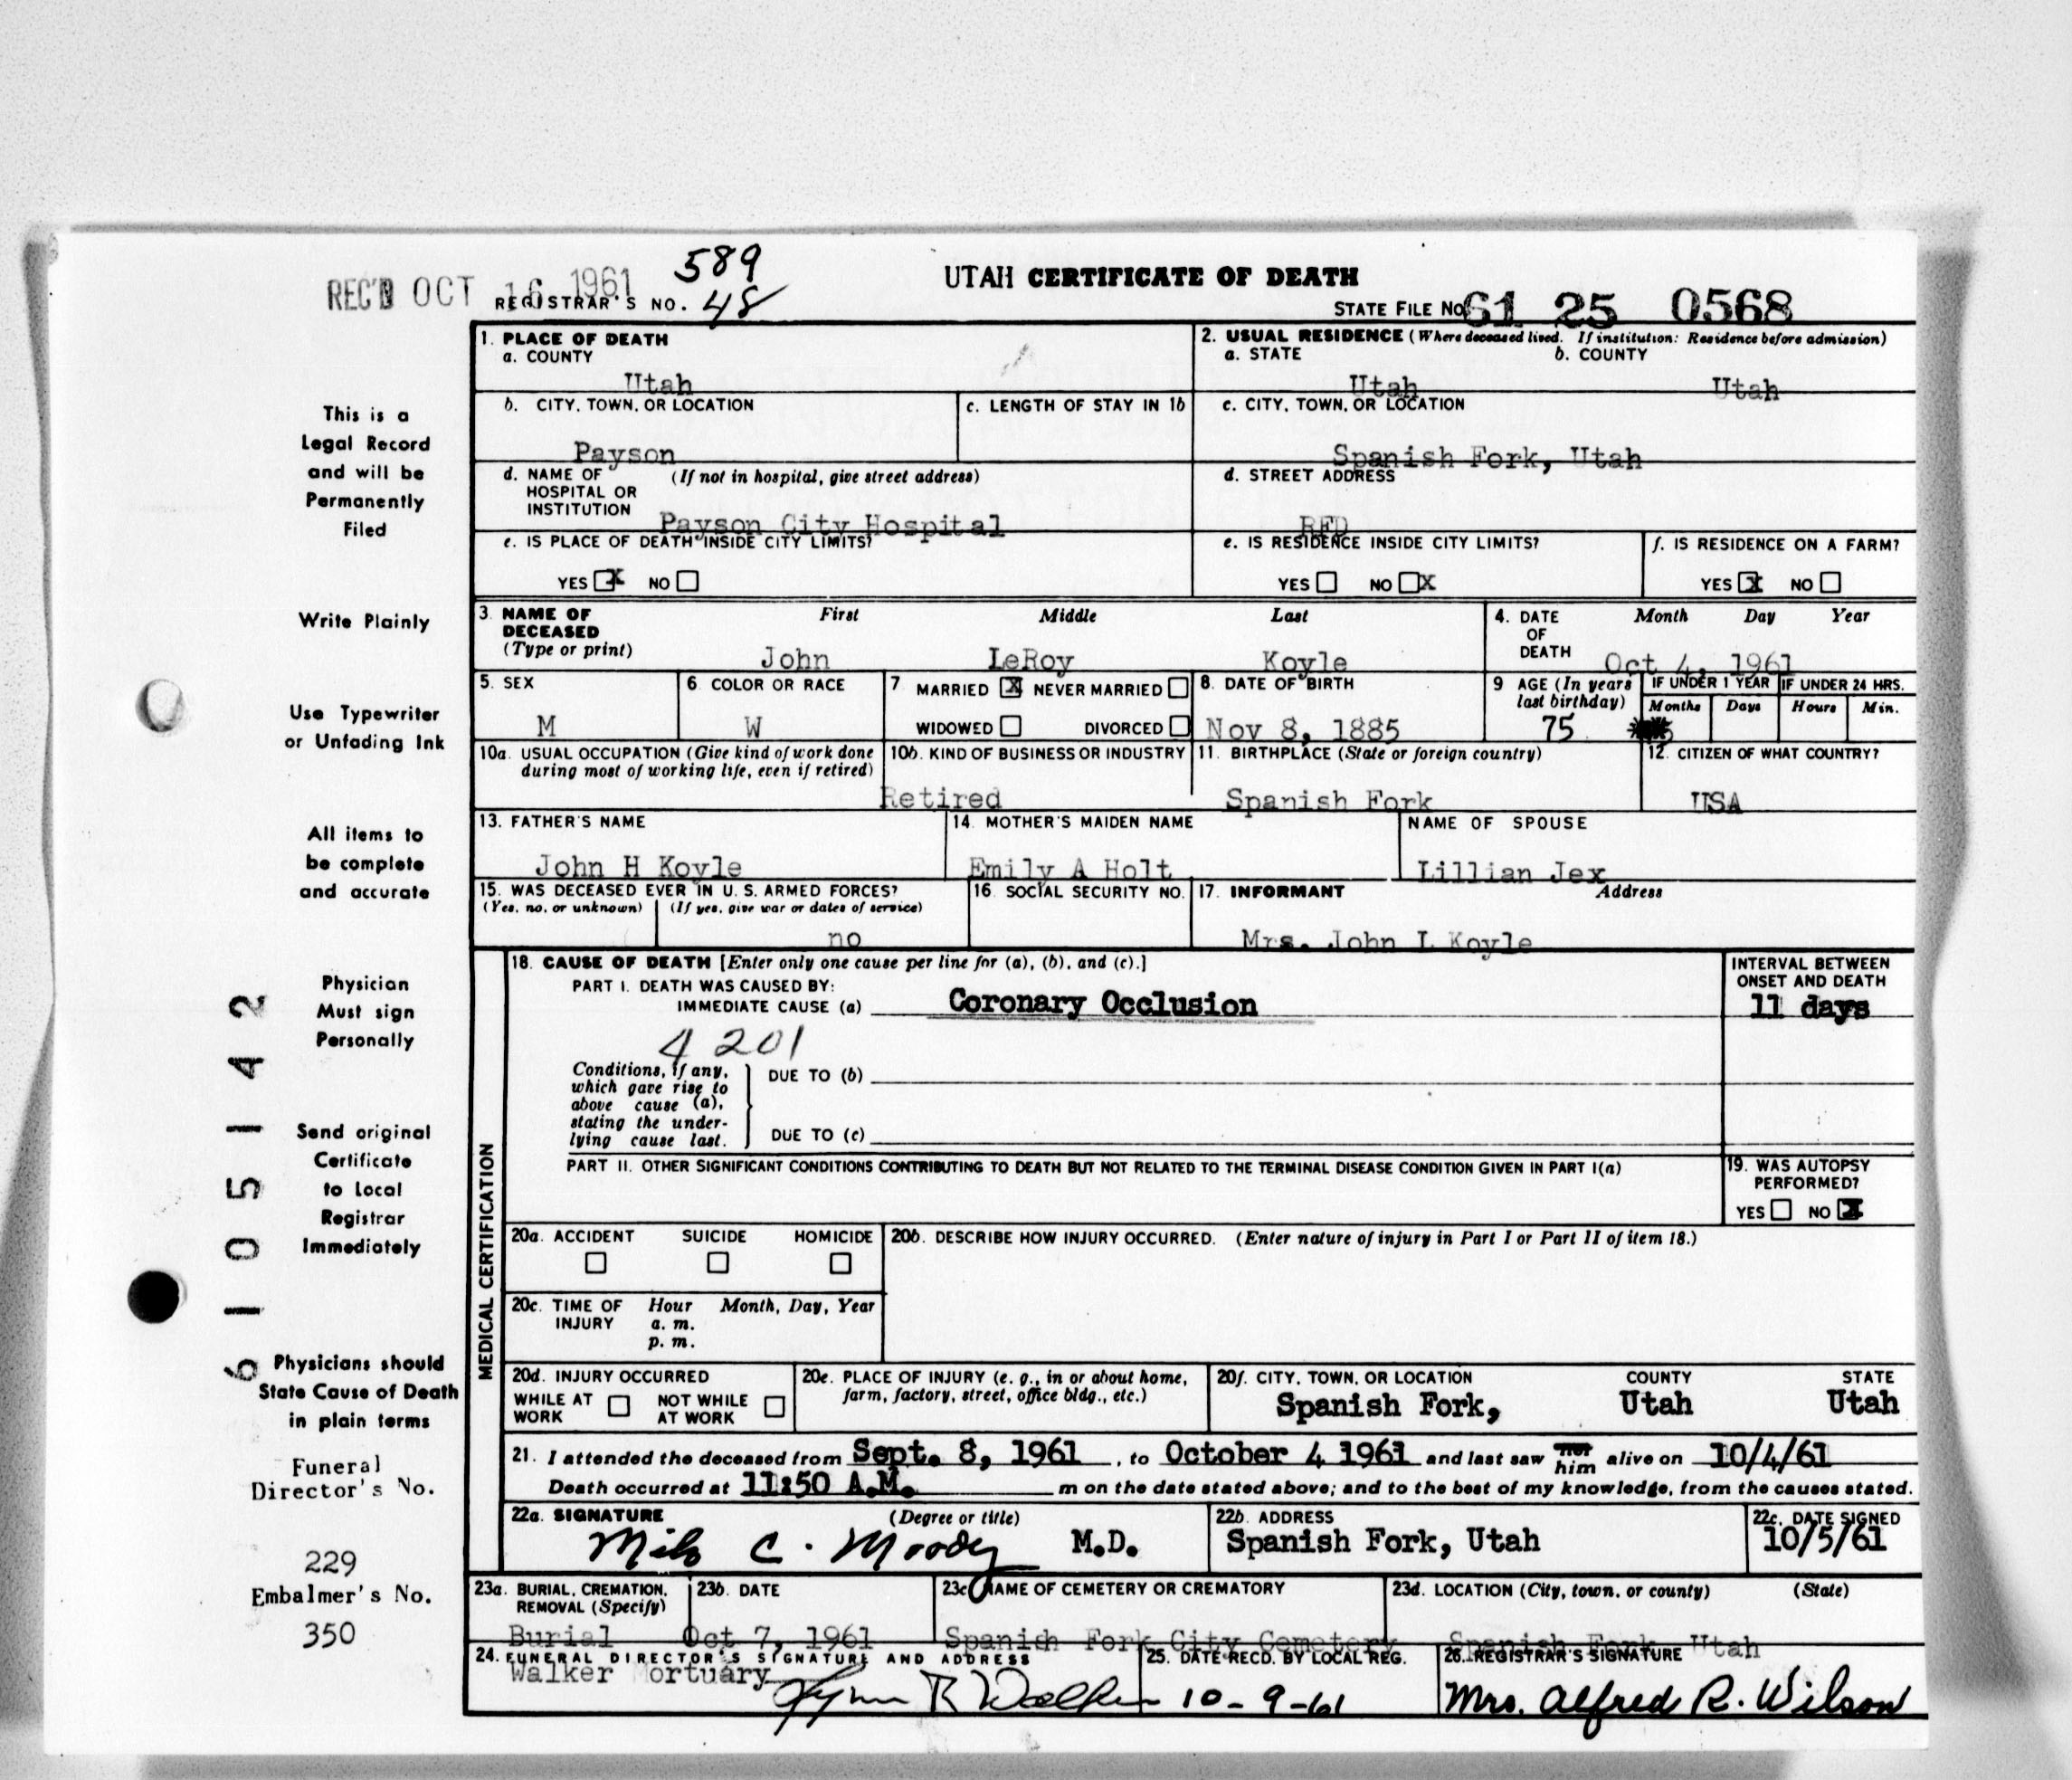 REC'D OCT 16 1961
589
REGISTRAR'S NO. 48
UTAH CERTIFICATE OF DEATH
STATE FILE NO. 61 25 0568
This is a
Legal Record
and will be
Permanently
Filed
Write Plainly
Use Typewriter
or Unfading Ink
All items to
be complete
and accurate
Physician
Must sign
Personally
Send original
Certificate
to Local
Registrar
Immediately
Physicians should
State Cause of Death
in plain terms
Funeral
Director's No.
229
Embalmer's No.
350
6 1 0 5 1 4 2
1. PLACE OF DEATH
a. COUNTY
Utah
2. USUAL RESIDENCE (Where deceased lived. If institution: Residence before admission)
a. STATE b. COUNTY
Utah Utah
b. CITY, TOWN, OR LOCATION
Payson
c. LENGTH OF STAY IN 1b
c. CITY, TOWN, OR LOCATION
Spanish Fork, Utah
d. NAME OF (If not in hospital, give street address)
HOSPITAL OR
INSTITUTION
Payson City Hospital
d. STREET ADDRESS
RFD
e. IS PLACE OF DEATH INSIDE CITY LIMITS?
YES X NO
e. IS RESIDENCE INSIDE CITY LIMITS?
YES NO X
f. IS RESIDENCE ON A FARM?
YES X NO
3. NAME OF DECEASED (Type or print)
First Middle Last
John LeRoy Koyle
4. DATE OF DEATH
Month Day Year
Oct 4, 1961
5. SEX
M
6 COLOR OR RACE
W
7 MARRIED X NEVER MARRIED
WIDOWED DIVORCED
8. DATE OF BIRTH
Nov 8, 1885
9 AGE (In years last birthday)
75
IF UNDER 1 YEAR
Months Days
IF UNDER 24 HRS.
Hours Min.
10a. USUAL OCCUPATION (Give kind of work done
during most of working life, even if retired)
10b. KIND OF BUSINESS OR INDUSTRY
Retired
11. BIRTHPLACE (State or foreign country)
Spanish Fork
12. CITIZEN OF WHAT COUNTRY?
USA
13. FATHER'S NAME
John H Koyle
14. MOTHER'S MAIDEN NAME
Emily A Holt
NAME OF SPOUSE
Lillian Jex
15. WAS DECEASED EVER IN U. S. ARMED FORCES?
(Yes, no, or unknown) (If yes, give war or dates of service)
no
16. SOCIAL SECURITY NO.
17. INFORMANT Address
Mrs. John L Koyle
MEDICAL CERTIFICATION
18. CAUSE OF DEATH [Enter only one cause per line for (a), (b), and (c).]
PART I. DEATH WAS CAUSED BY:
IMMEDIATE CAUSE (a) Coronary Occlusion
INTERVAL BETWEEN
ONSET AND DEATH
11 days
4201
Conditions, if any,
which gave rise to
above cause (a),
stating the under-
lying cause last.
DUE TO (b)
DUE TO (c)
PART II. OTHER SIGNIFICANT CONDITIONS CONTRIBUTING TO DEATH BUT NOT RELATED TO THE TERMINAL DISEASE CONDITION GIVEN IN PART I(a)
19. WAS AUTOPSY
PERFORMED?
YES NO X
20a. ACCIDENT SUICIDE HOMICIDE
20b. DESCRIBE HOW INJURY OCCURRED. (Enter nature of injury in Part I or Part II of item 18.)
20c. TIME OF INJURY
Hour Month, Day, Year
a. m.
p. m.
20d. INJURY OCCURRED
WHILE AT WORK NOT WHILE AT WORK
20e. PLACE OF INJURY (e. g., in or about home,
farm, factory, street, office bldg., etc.)
20f. CITY, TOWN, OR LOCATION COUNTY STATE
Spanish Fork, Utah Utah
21. I attended the deceased from Sept. 8, 1961, to October 4 1961 and last saw her him alive on 10/4/61
Death occurred at 11:50 A.M. m on the date stated above; and to the best of my knowledge, from the causes stated.
22a. SIGNATURE (Degree or title)
Milo C. Moody M.D.
22b. ADDRESS
Spanish Fork, Utah
22c. DATE SIGNED
10/5/61
23a. BURIAL, CREMATION,
REMOVAL (Specify)
Burial
23b. DATE
Oct 7, 1961
23c. NAME OF CEMETERY OR CREMATORY
Spanish Fork City Cemetery
23d. LOCATION (City, town, or county) (State)
Spanish Fork Utah
24. FUNERAL DIRECTOR'S SIGNATURE AND ADDRESS
Walker Mortuary Lynn R Walker
25. DATE RECD. BY LOCAL REG.
10-9-61
26. REGISTRAR'S SIGNATURE
Mrs. Alfred R. Wilson